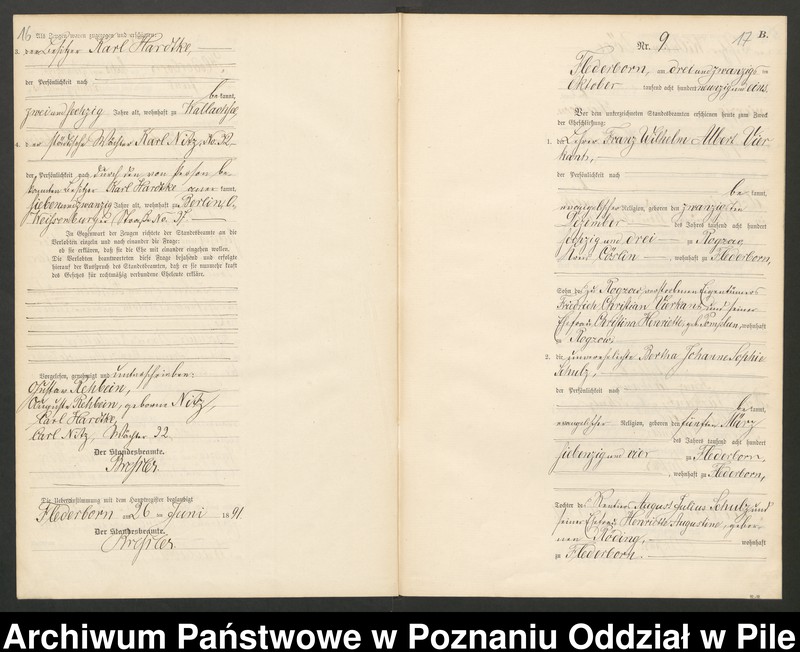 16
Als Zeugen waren zugezogen und erschienen:
3. der Besitzer Karl Hardtke,
der Persönlichkeit nach
be kannt,
zwei und sechzig Jahre alt, wohnhaft zu Wallachsee
4. der städtische Wächter Karl Nitz, No. 22
der Persönlichkeit nach durch den von Person be
kannten Besitzer Karl Hardtke aner kannt,
sieben und zwanzig Jahre alt, wohnhaft zu Berlin, O.
In Gegenwart der Zeugen richtete der Standesbeamte an die
Verlobten einzeln und nach einander die Frage:
ob sie erklären, daß sie die Ehe mit einander eingehen wollen.
Die Verlobten beantworteten diese Frage bejahend und erfolgte
hierauf der Ausspruch des Standesbeamten, daß er sie nunmehr kraft
des Gesetzes für rechtmäßig verbundene Eheleute erkläre.
Vorgelesen, genehmigt und unterschrieben:
Gustav Rehbein,
Auguste Rehbein, geborne Nitz,
Carl Hardtke,
Carl Nitz, Wächter 22
Der Standesbeamte.
Die Uebereinstimmung mit dem Hauptregister beglaubigt
Flederborn am 26 ten Juni 1891.
Der Standesbeamte.
17 B.
Nr. 9
Flederborn, am drei und zwanzigsten
Oktober tausend acht hundert neunzig und eins.
Vor dem unterzeichneten Standesbeamten erschienen heute zum Zweck
der Eheschließung:
1. der Lehrer Franz Wilhelm Albert Vier-
kant,
der Persönlichkeit nach
be kannt,
evangelischer Religion, geboren den zwanzigsten
Dezember des Jahres tausend acht hundert
sechzig und drei zu Rogzow,
Kreis Cöslin, wohnhaft zu Flederborn,
Sohn des zu Rogzow verstorbenen Eigentümers
Friedrich Christian Vierkant und seiner
Ehefrau Christina Henriette, geb. wohnhaft
zu Rogzow.
2. die unverehelichte Bertha Johanne Sophie
Schulz,
der Persönlichkeit nach
be kannt,
evangelischer Religion, geboren den fünften März
des Jahres tausend acht hundert
siebenzig und vier zu Flederborn,
wohnhaft zu Flederborn,
Tochter des Rentier August Julius Schulz und
seiner Ehefrau Henriette Augustine, gebor-
nen Röding, wohnhaft
zu Flederborn.
Archiwum Państwowe w Poznaniu Oddział w Pile